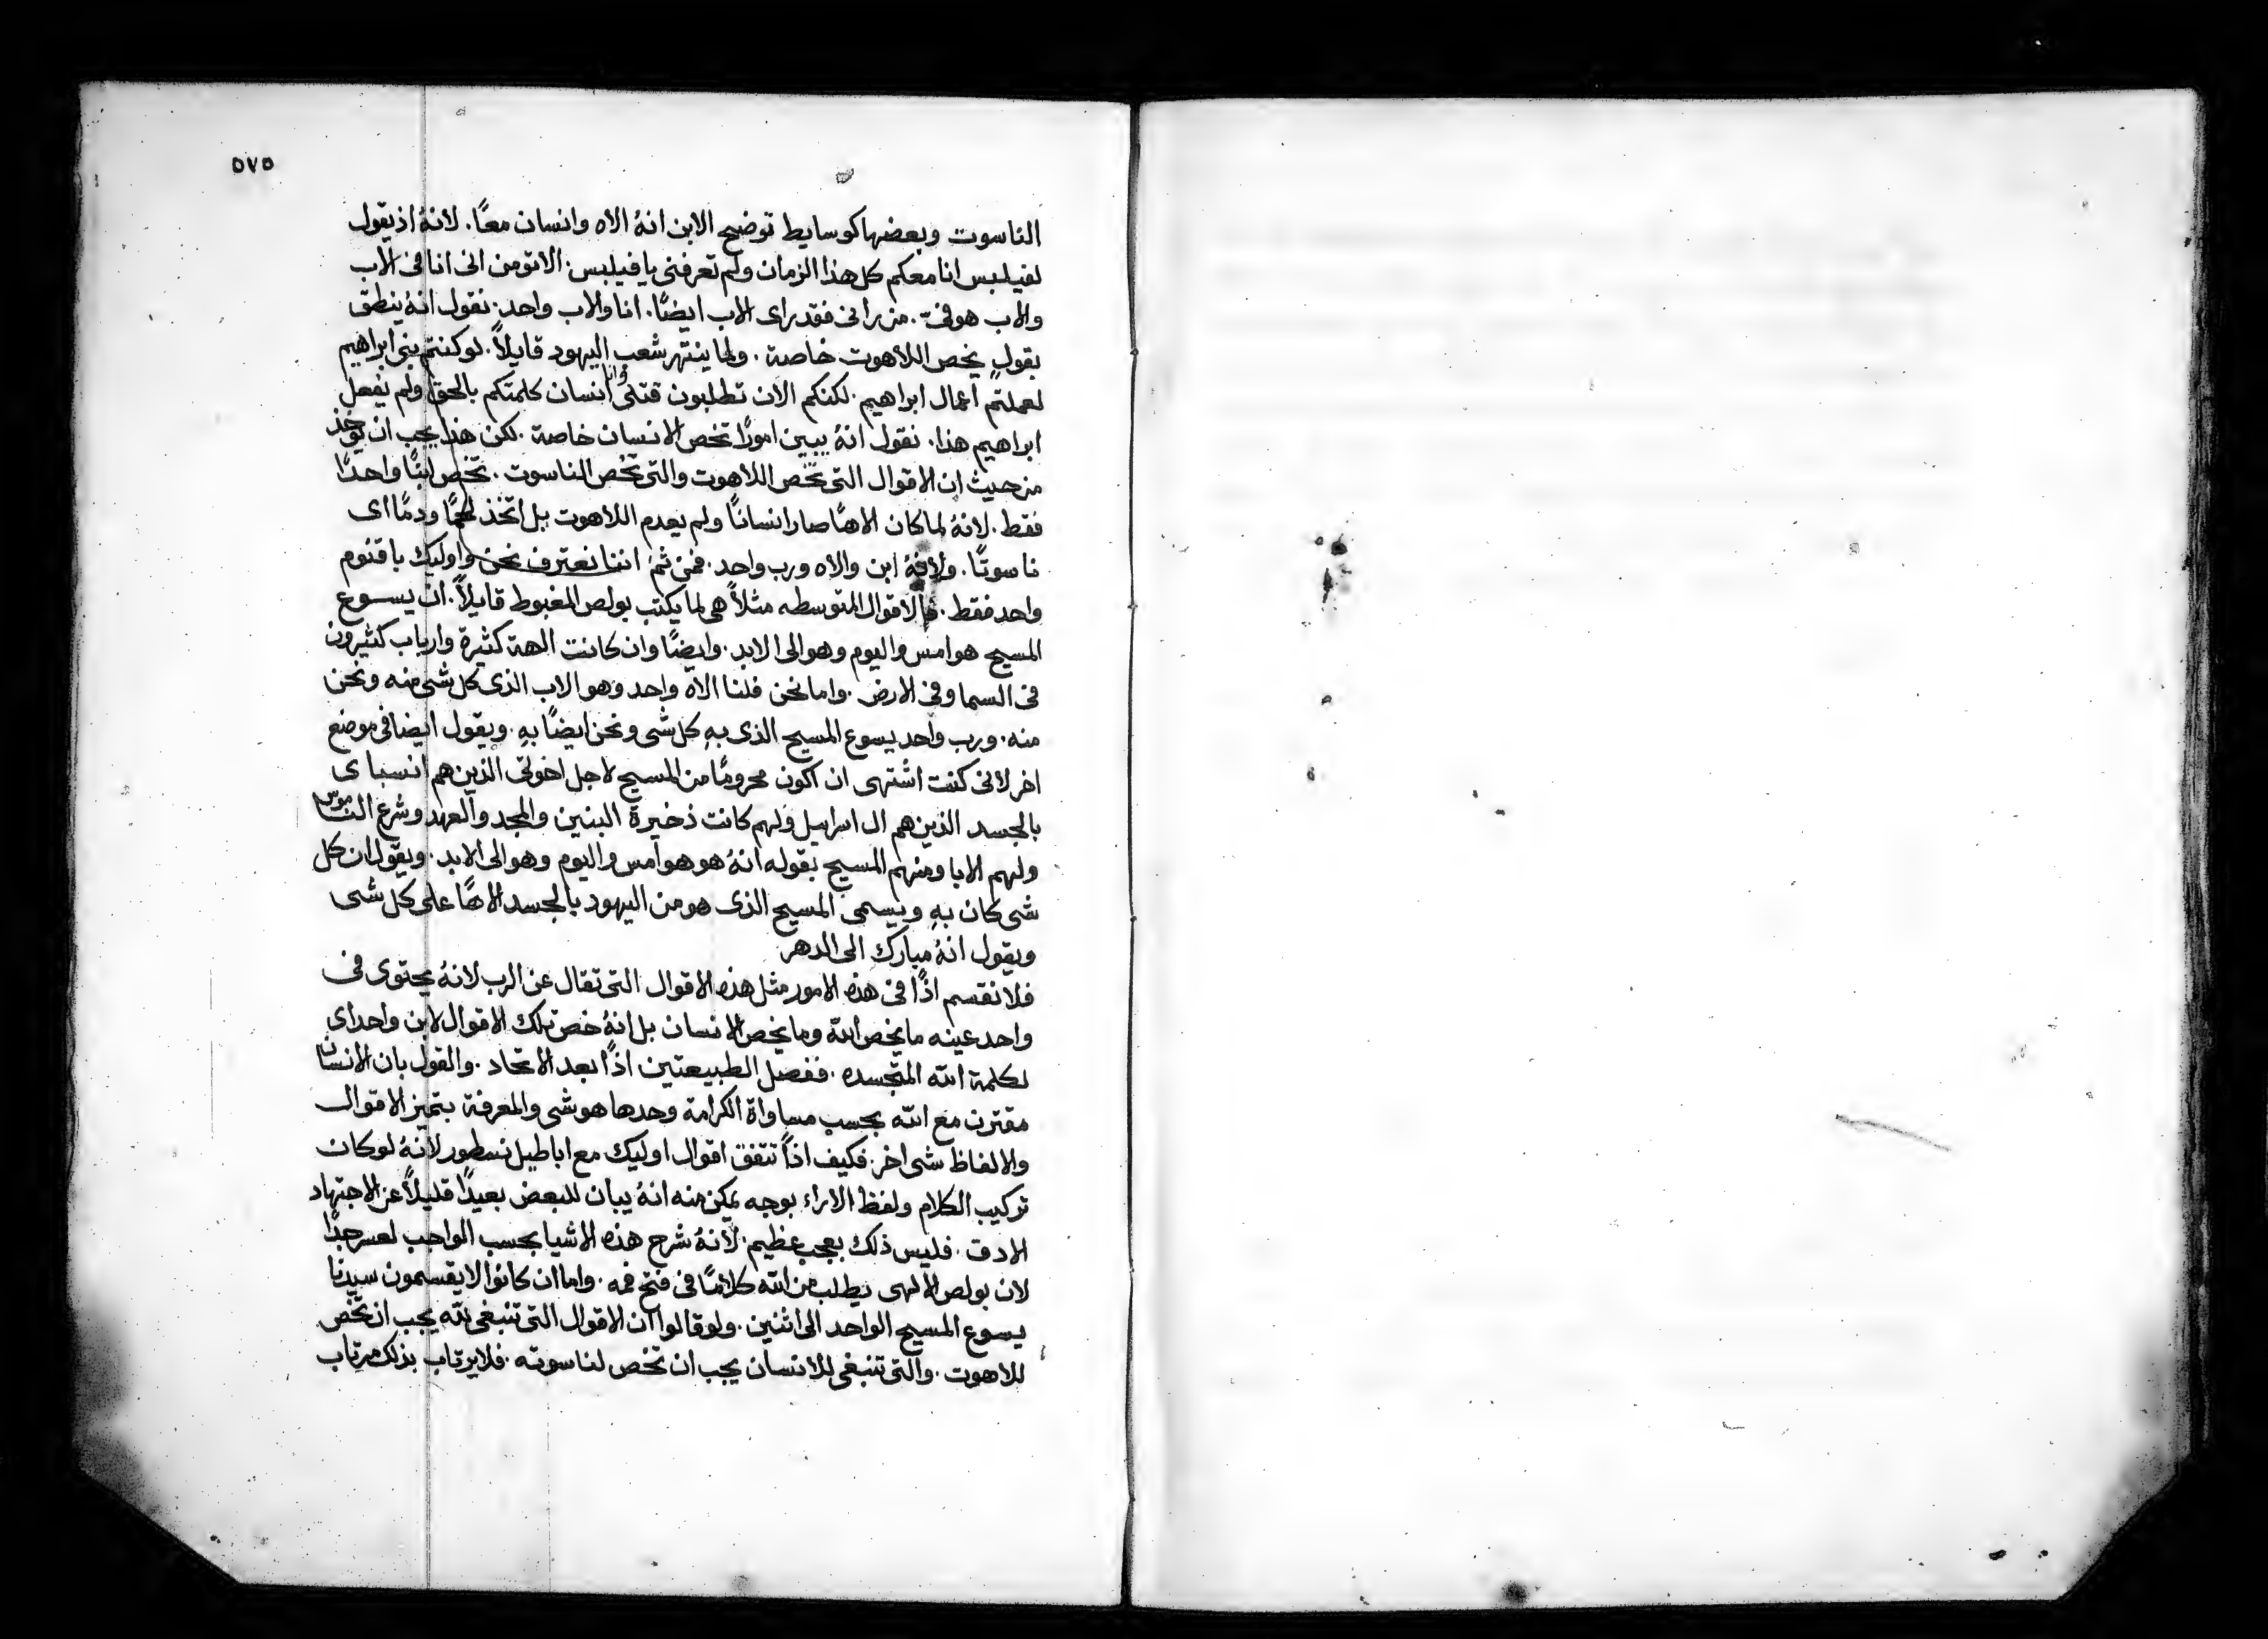 ٥٧٥
الناسوت وبعضها كوسايط توضح الابن انهُ الاه وانسان معًا. لانهُ اذ يقول
لفيلبس انا معكم كل هذا الزمان ولم تعرفنى يا فيلبس. الا تومن انى انا فى الاب
والاب هو فىّ. من رانى فقد راى الاب ايضًا. انا والاب واحد. نقول انهُ ينطق
بقولٍ يخص اللاهوت خاصة. ولما ينتهر شعب اليهود قايلاً. لو كنتم بنى ابراهيم
لعملتم اعمال ابراهيم. لكنكم الان تطلبون قتلى وانا انسان كلمتكم بالحق ولم يفعل
ابراهيم هذا. نقول انهُ يبين امورًا تخص الانسان خاصة. لكن هذا يجب ان يوخذ
من حيث ان الاقوال التى تخص اللاهوت والتى تخص الناسوت. تخص ابنًا واحدًا
فقط. لانهُ لما كان الاهًا صار انسانًا ولم يعدم اللاهوت بل اتخذ لحمًا ودمًا اى
ناسوتًا. ولانهُ ابن والاه ورب واحد. فمن ثم اننا نعترف نحن واوليك باقنوم
واحد فقط. فالاقوال المتوسطه مثلاً هى لما يكتب بولص المغبوط قايلاً. ان يسوع
المسيح هو امس واليوم وهو الى الابد. وايضًا وان كانت الهة كثيرة وارباب كثيرون
فى السما وفى الارض. واما نحن فلنا الاه واحد وهو الاب الذى كل شى منه ونحن
منه. ورب واحد يسوع المسيح الذى بهِ كل شى ونحن ايضًا بهِ. ويقول ايضا فى موضع
اخر لانى كنت اشتهى ان اكون محرومًا من المسيح لاجل اخوتى الذين هم انسباى
بالجسد الذين هم ال اسراييل ولهم كانت ذخيرة البنين والمجد والعهد وشرع الناموس
ولهم الابا ومنهم المسيح بقوله انهُ هو هو امس واليوم وهو الى الابد. ويقول ان كل
شى كان بهِ ويسمى المسيح الذى هو من اليهود بالجسد الاهًا على كل شى
ويقول انهُ مبارك الى الدهر
فلا نقسم اذًا فى هذه الامور مثل هذه الاقوال التى تقال عن الرب لانهُ يحتوى فى
واحد عينه ما يخص الله وما يخص الانسان بل انهُ خص تلك الاقوال لابن واحد اى
لكلمة الله المتجسده. ففصل الطبيعتين اذًا بعد الاتحاد. والقول بان الانسان
مقترن مع الله بحسب مساواة الكرامة وحدها هو شى والمعرفة بتميز الاقوال
والالفاظ شى اخر. فكيف اذًا تتفق اقوال اوليك مع اباطيل نسطور لانهُ لو كان
تركيب الكلام ولفظ الاراء بوجه يمكن منه انهُ يبان للبعض بعيدًا قليلاً عن الاجتهاد
الادق. فليس ذلك بعجب عظيم. لانهُ شرح هذه الاشيا بحسب الواجب لعسر جدًا
لان بولص الالهى يطلب من الله كلامًا فى فتح فمه. واما ان كانوا لا يقسمون سيدنا
يسوع المسيح الواحد الى اثنين. ولو قالوا ان الاقوال التى تنبغى لله يجب ان تخص
للاهوت. والتى تنبغى للانسان يجب ان تخص لناسوته. فلا يرتاب بذلك مرتاب